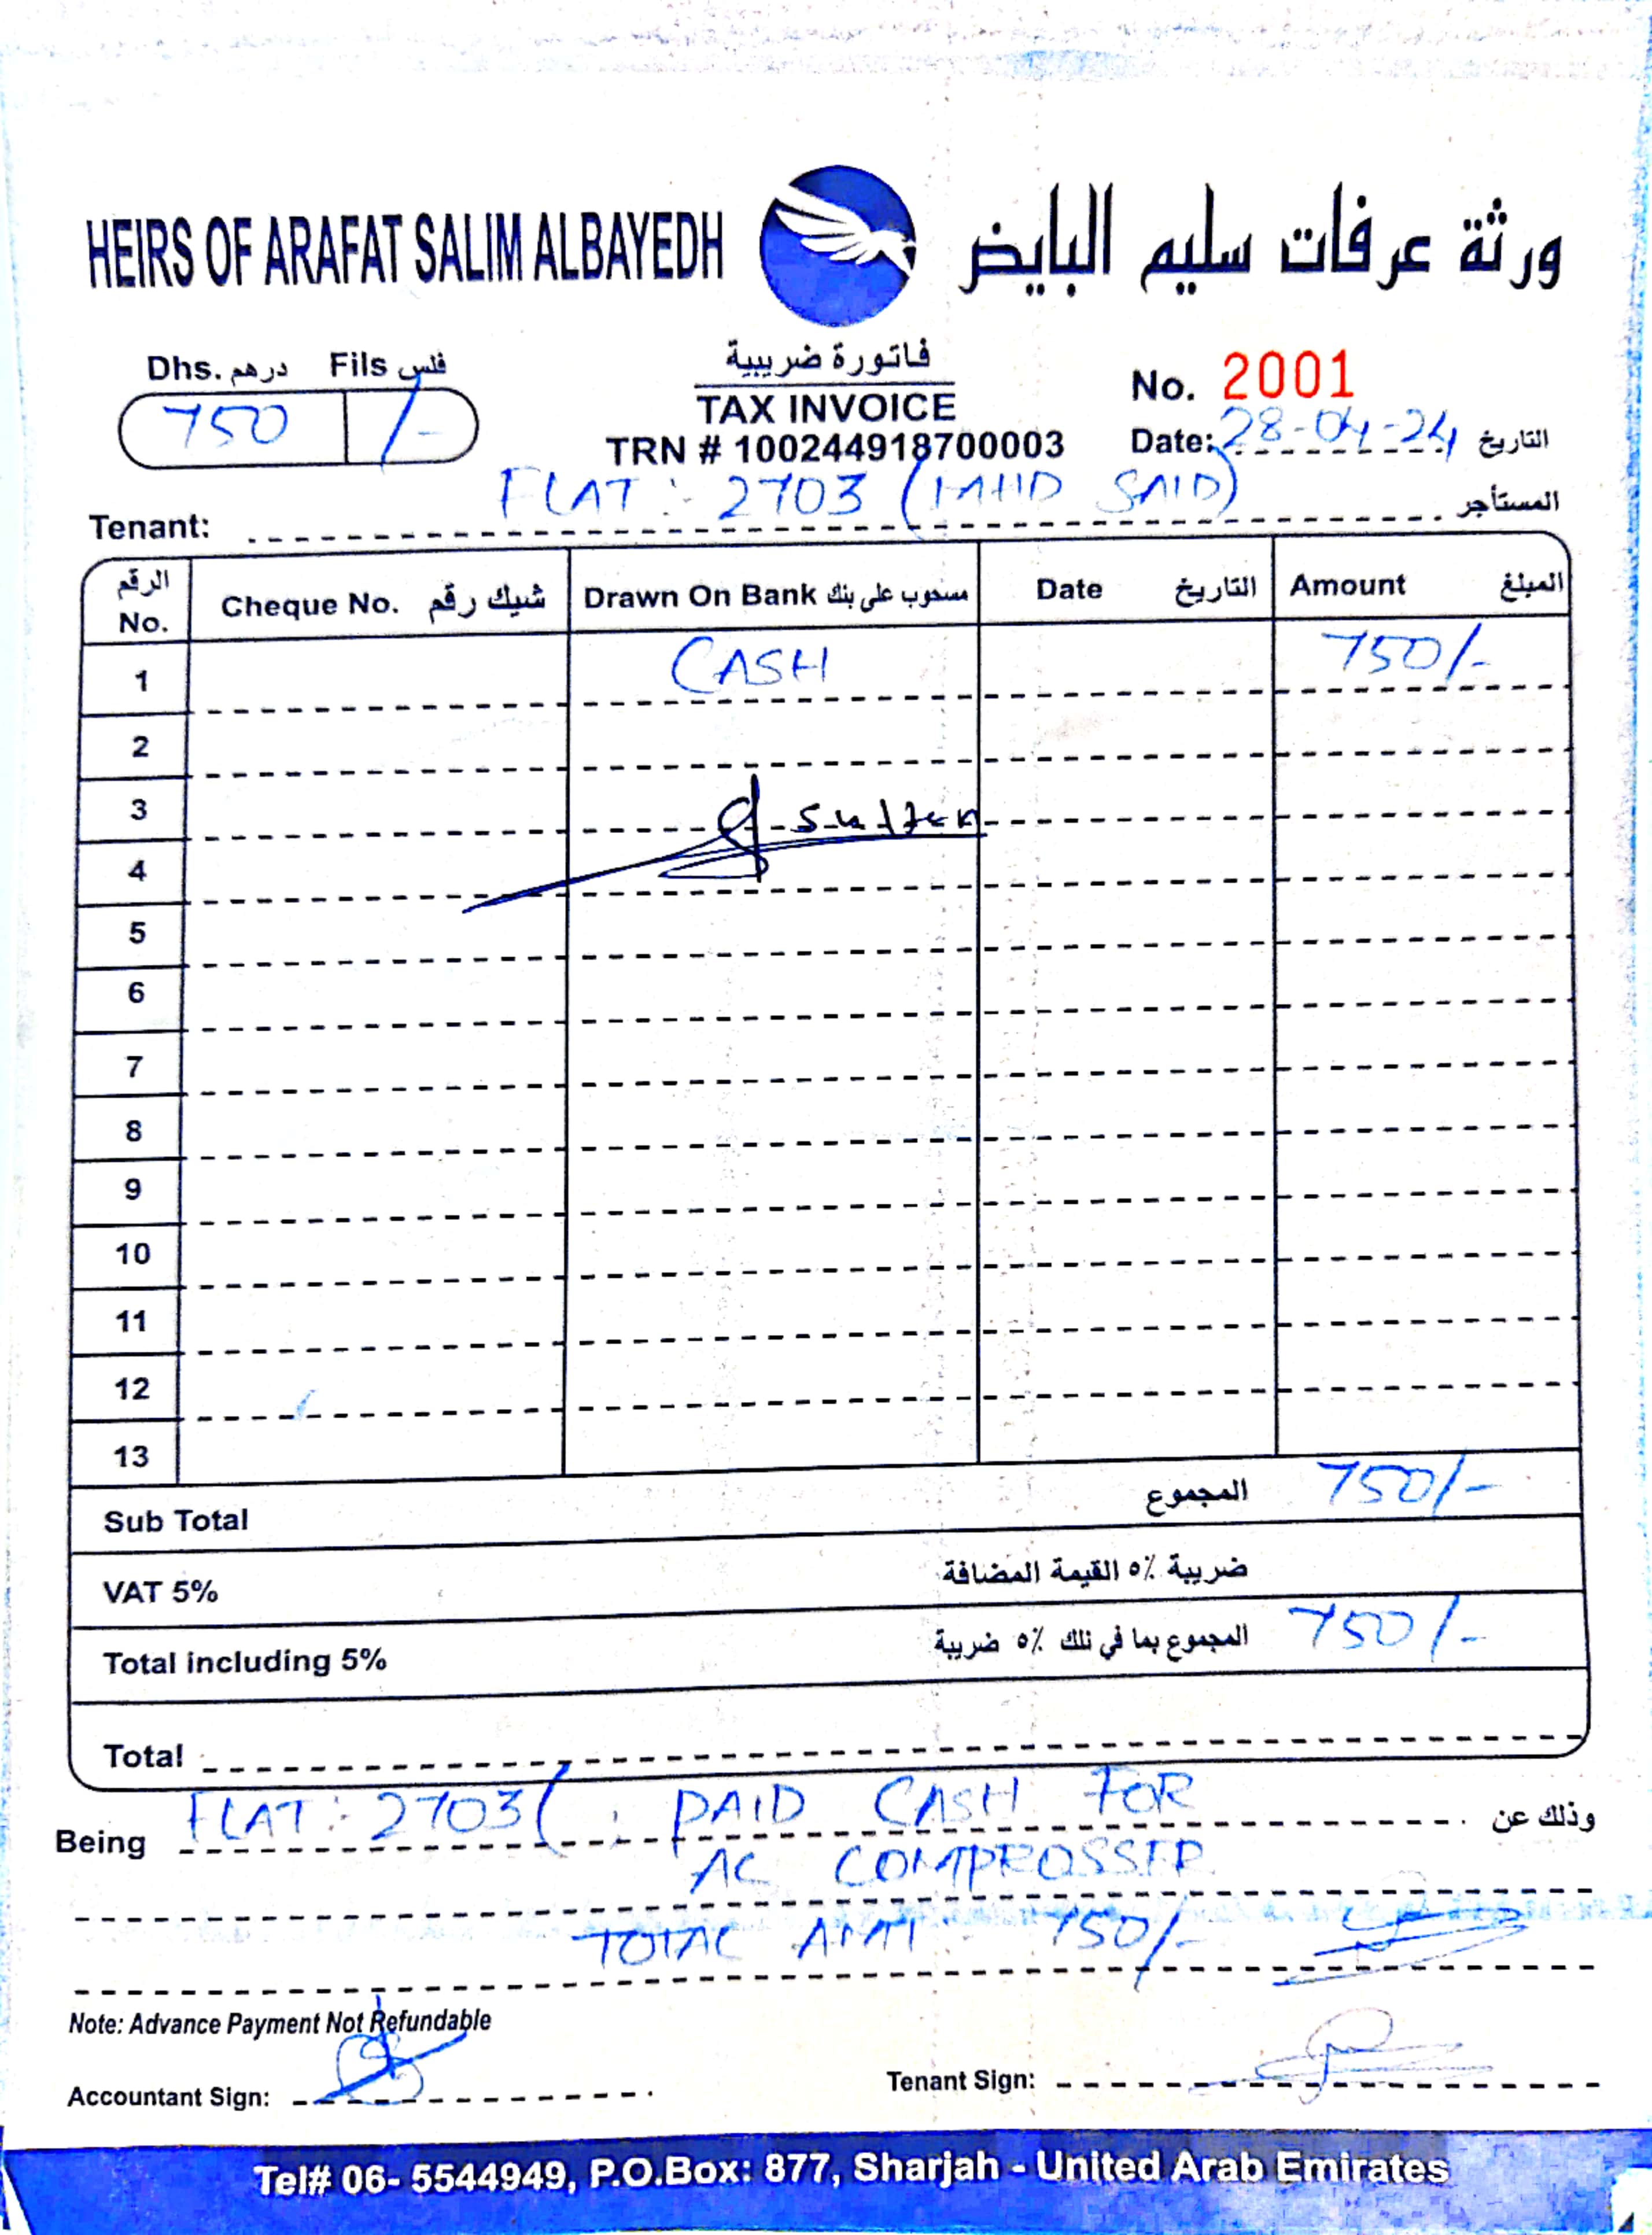 HEIRS OF ARAFAT SALIM ALBAYEDH ورثة عرفات سليم البايض
Dhs. درهم Fils فلس
750 /-
فاتورة ضريبية
TAX INVOICE
TRN # 100244918700003
No. 2001
Date: 28-04-24 التاريخ
Tenant: FLAT : 2703 ( SAID) المستأجر
الرقم No. Cheque No. شيك رقم Drawn On Bank مسحوب على بنك Date التاريخ Amount المبلغ
1 CASH 750/-
2
3
4
5
6
7
8
9
10
11
12
13
Sub Total المجموع 750/-
VAT 5% ضريبة ٥٪ القيمة المضافة
Total including 5% المجموع بما في ذلك ٥٪ ضريبة 750/-
Total
Being FLAT : 2703 ( : PAID CASH FOR وذلك عن
AC COMPROSSER
TOTAL AMT 750/-
Note: Advance Payment Not Refundable
Accountant Sign: Tenant Sign:
Tel# 06- 5544949, P.O.Box: 877, Sharjah - United Arab Emirates